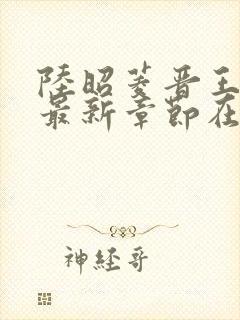 陸昭菱晋王
最新章節在
神經哥